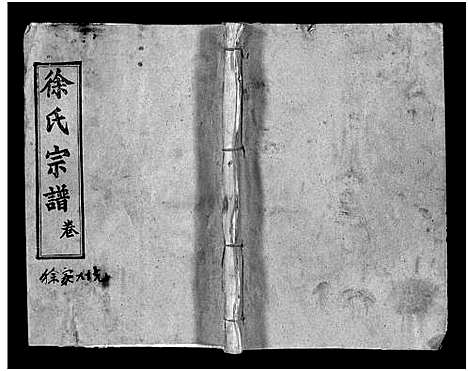 徐氏宗譜
卷
徐家